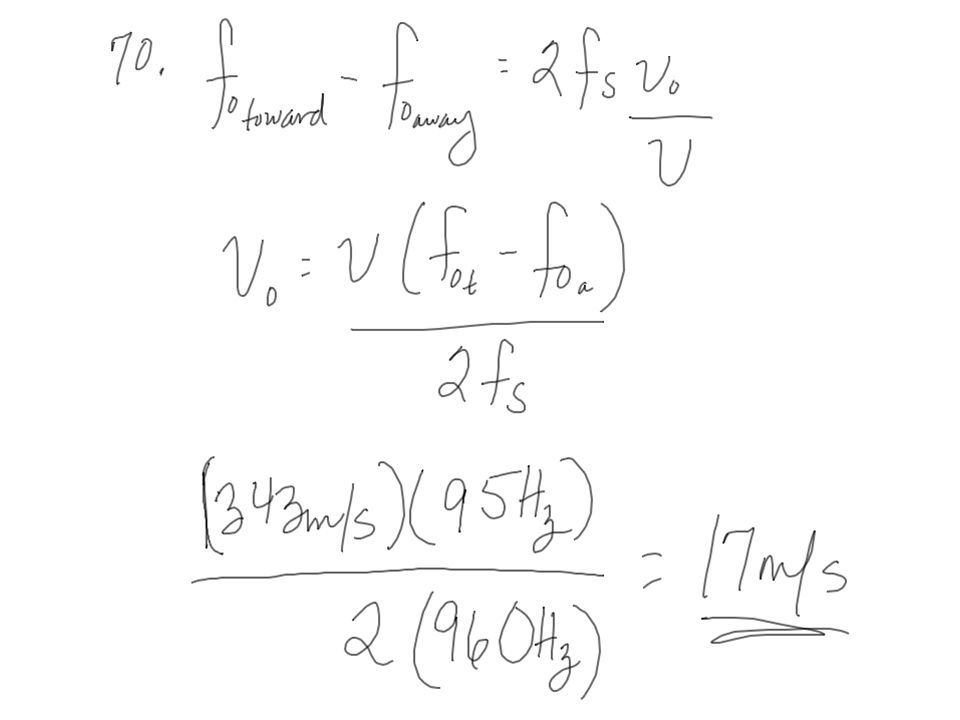 70. f₀ toward - f₀ away = 2fₛ v₀/v
v₀ = v(f₀t - f₀a)/2fₛ
(343m/s)(95Hz)/2(960Hz) = 17m/s